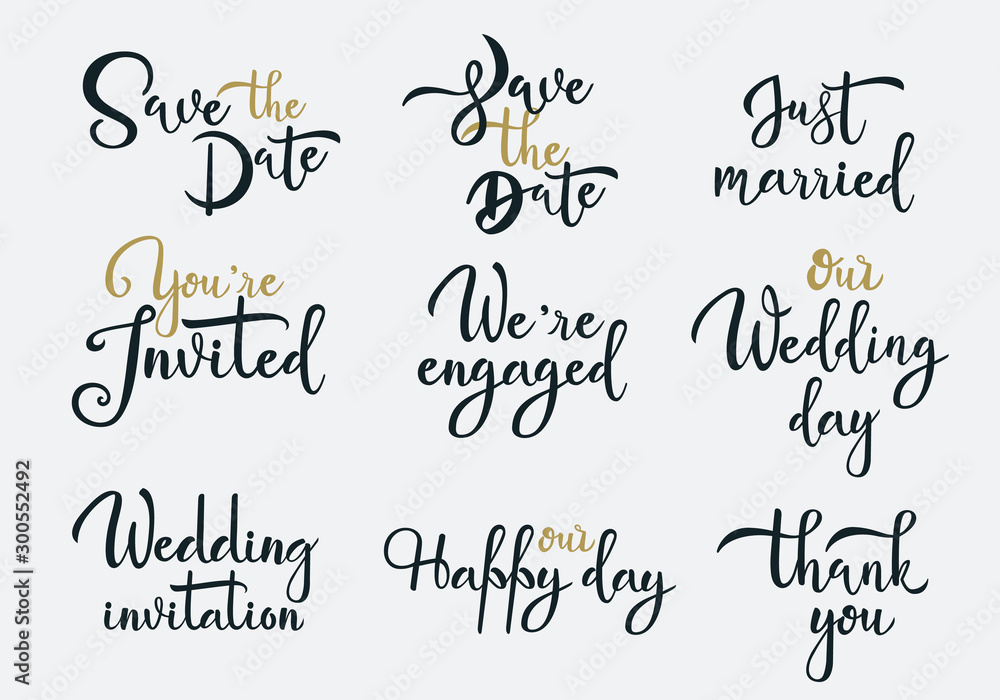 Save the
Date
Save
the
Date
Just
married
You're
Invited
We're
engaged
Our
Wedding
day
Wedding
invitation
our
Happy day
thank
you
Adobe Stock | #300552492